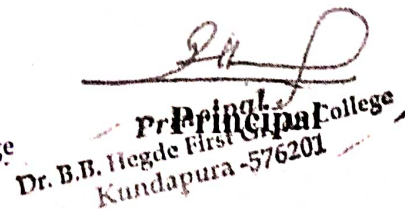 Principal
Dr. B.B. Hegde First College
Kundapura -576201